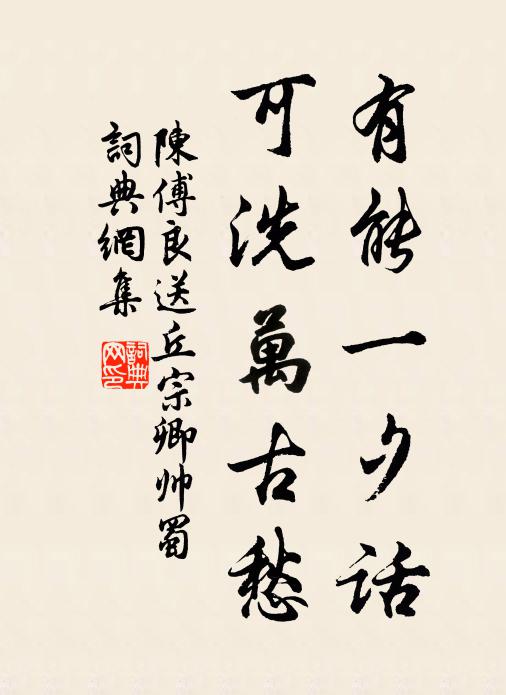 有能一夕话
可洗萬古愁
陳傅良送丘宗卿帅蜀
詞典網集
詞典
网印